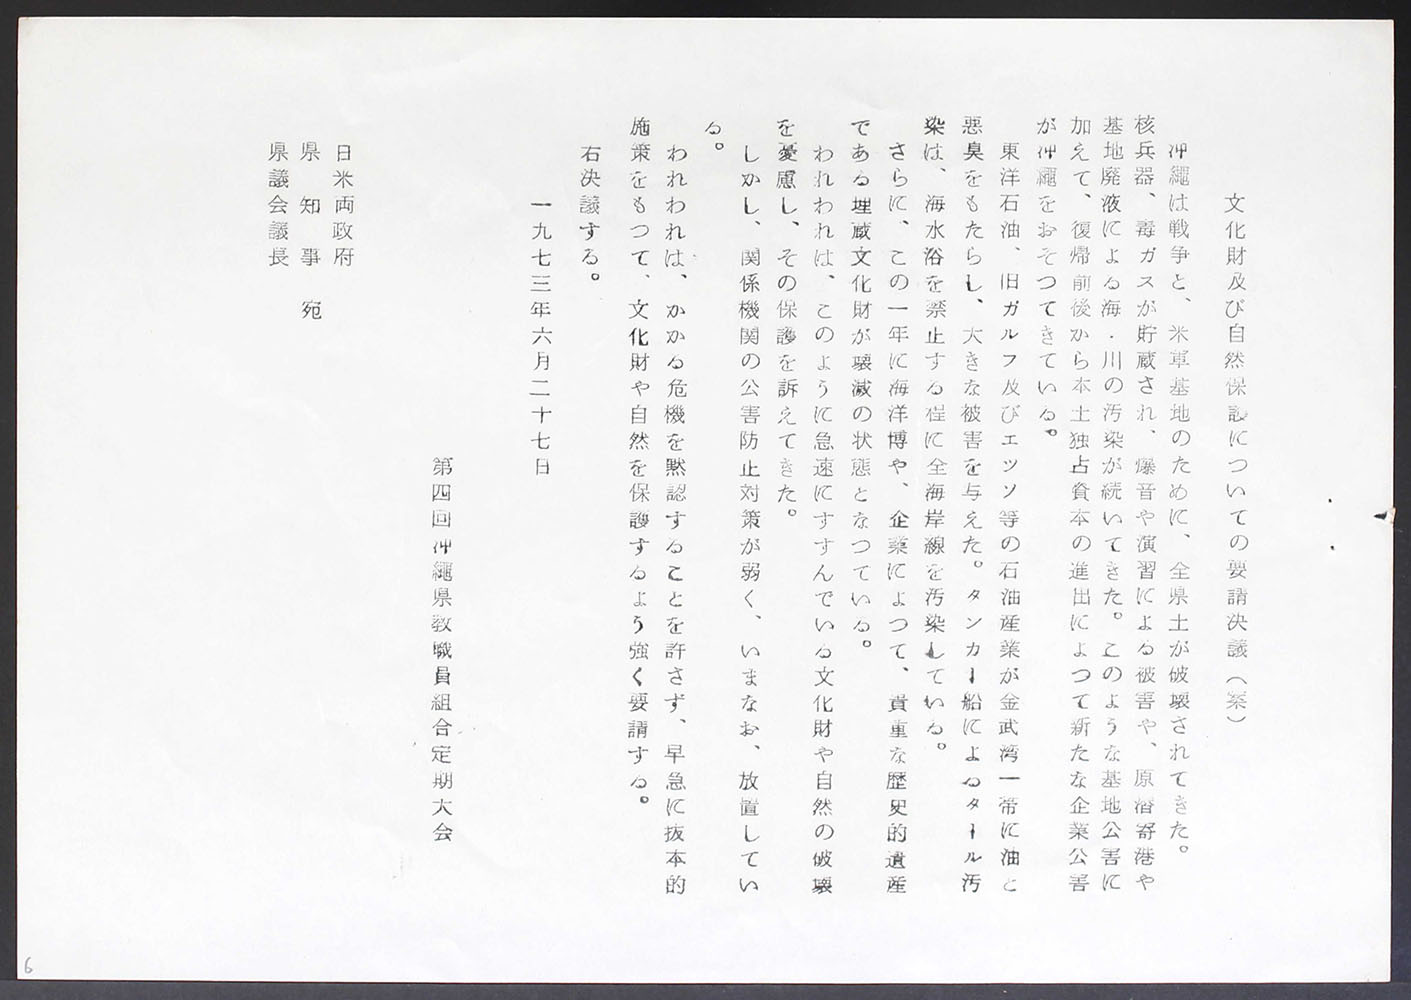 文化財及び自然保護についての要請決議(案)
沖縄は戦争と、米軍基地のために、全県土が破壊されてきた。
核兵器、毒ガスが貯蔵され、爆音や演習による被害や、原潜寄港や
基地廃液による海・川の汚染が続いてきた。このような基地公害に
加えて、復帰前後から本土独占資本の進出によつて新たな企業公害
が沖縄をおそつてきている。
東洋石油、旧ガルフ及びエッソ等の石油産業が金武湾一帯に油と
悪臭をもたらし、大きな被害を与えた。タンカー船によるタール汚
染は、海水浴を禁止する程に全海岸線を汚染している。
さらに、この一年に海洋博や、企業によつて、貴重な歴史的遺産
である埋蔵文化財が壊滅の状態となつている。
われわれは、このように急速にすすんでいる文化財や自然の破壊
を憂慮し、その保護を訴えてきた。
しかし、関係機関の公害防止対策が弱く、いまなお、放置してい
る。
われわれは、かかる危機を黙認することを許さず、早急に抜本的
施策をもつて、文化財や自然を保護するよう強く要請する。
右決議する。
一九七三年六月二十七日
第四回沖縄県教職員組合定期大会
日米両政府
県知事 宛
県議会議長
6